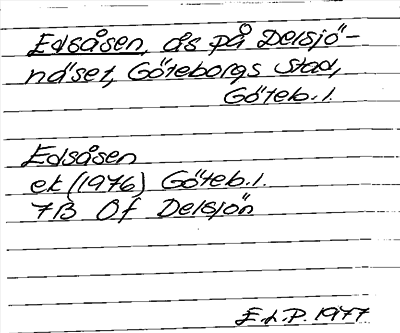 Edsåsen, ås på Delsjö-
näset, Göteborgs stad,
Göteb. l.
Edsåsen
ek (1976) Göteb. l.
7B Of Delsjön
E.L.P. 1977